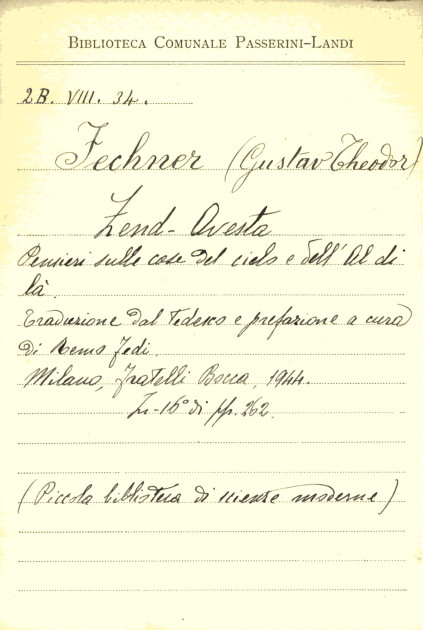 BIBLIOTECA COMUNALE PASSERINI-LANDI
2B. VIII. 34.
Fechner (Gustav Theodor)
Zend-Avesta
Pensieri sulle cose del cielo e dell'Al di
là.
Traduzione dal Tedesco e prefazione a cura
di Remo Fedi.
Milano, Fratelli Bocca, 1944.
In-16° di pp. 262.
(Piccola biblioteca di scienze moderne)